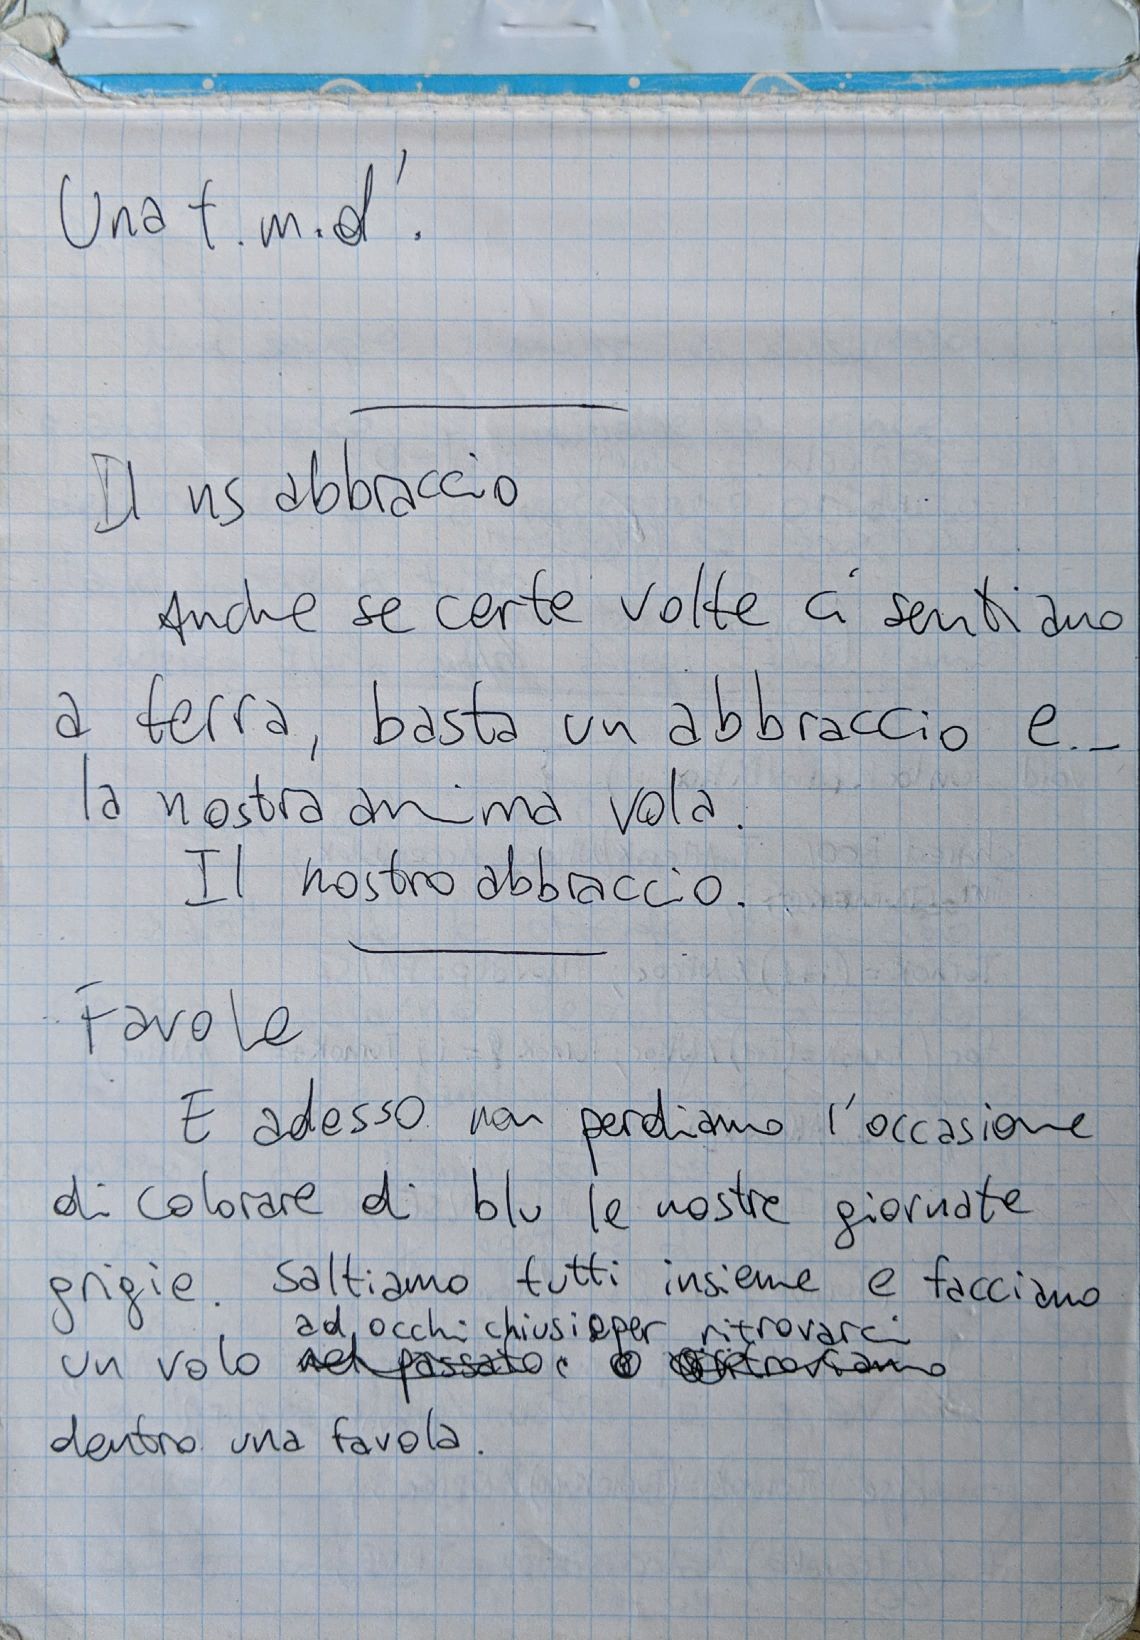 Una t.m.d'.
Il ns abbraccio
Anche se certe volte ci sentiamo
a terra, basta un abbraccio e...
la nostra anima vola.
Il nostro abbraccio.
Favole
E adesso non perdiamo l'occasione
di colorare di blu le nostre giornate
grigie. Saltiamo tutti insieme e facciamo
ad occhi chiusi per ritrovarci
un volo nel passato e ritroviamo
dentro una favola.